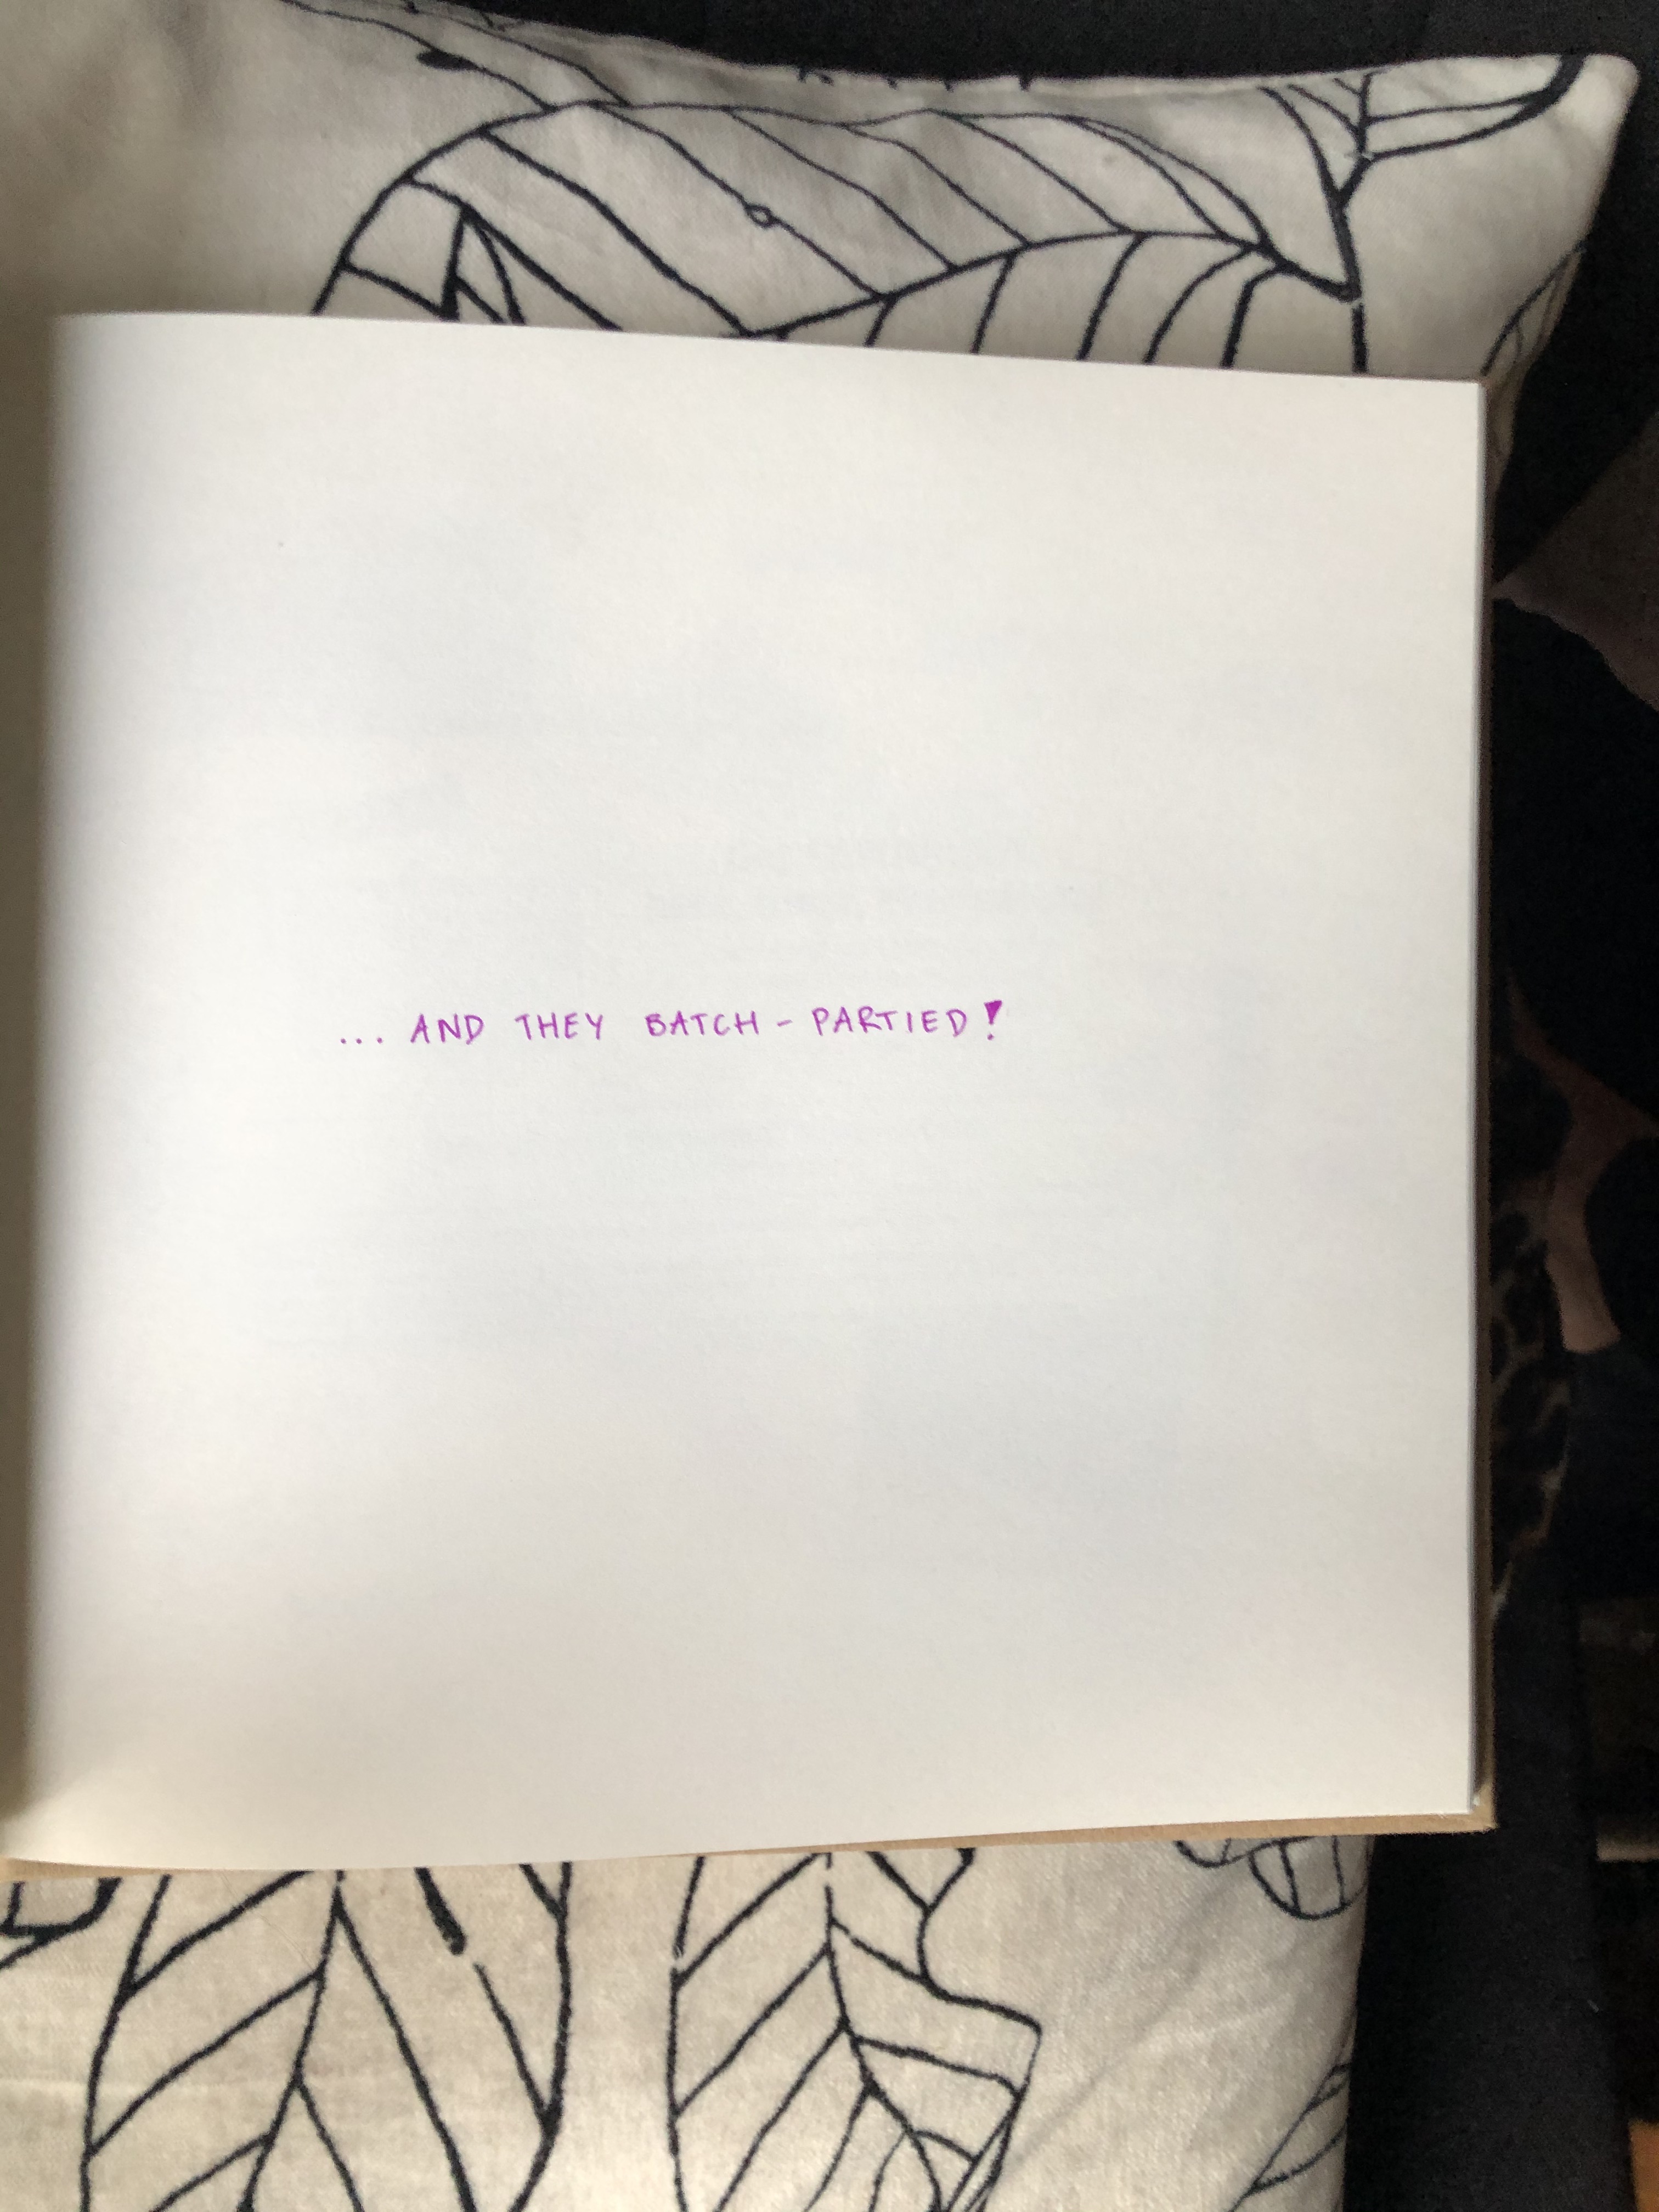 ... AND THEY BATCH - PARTIED!